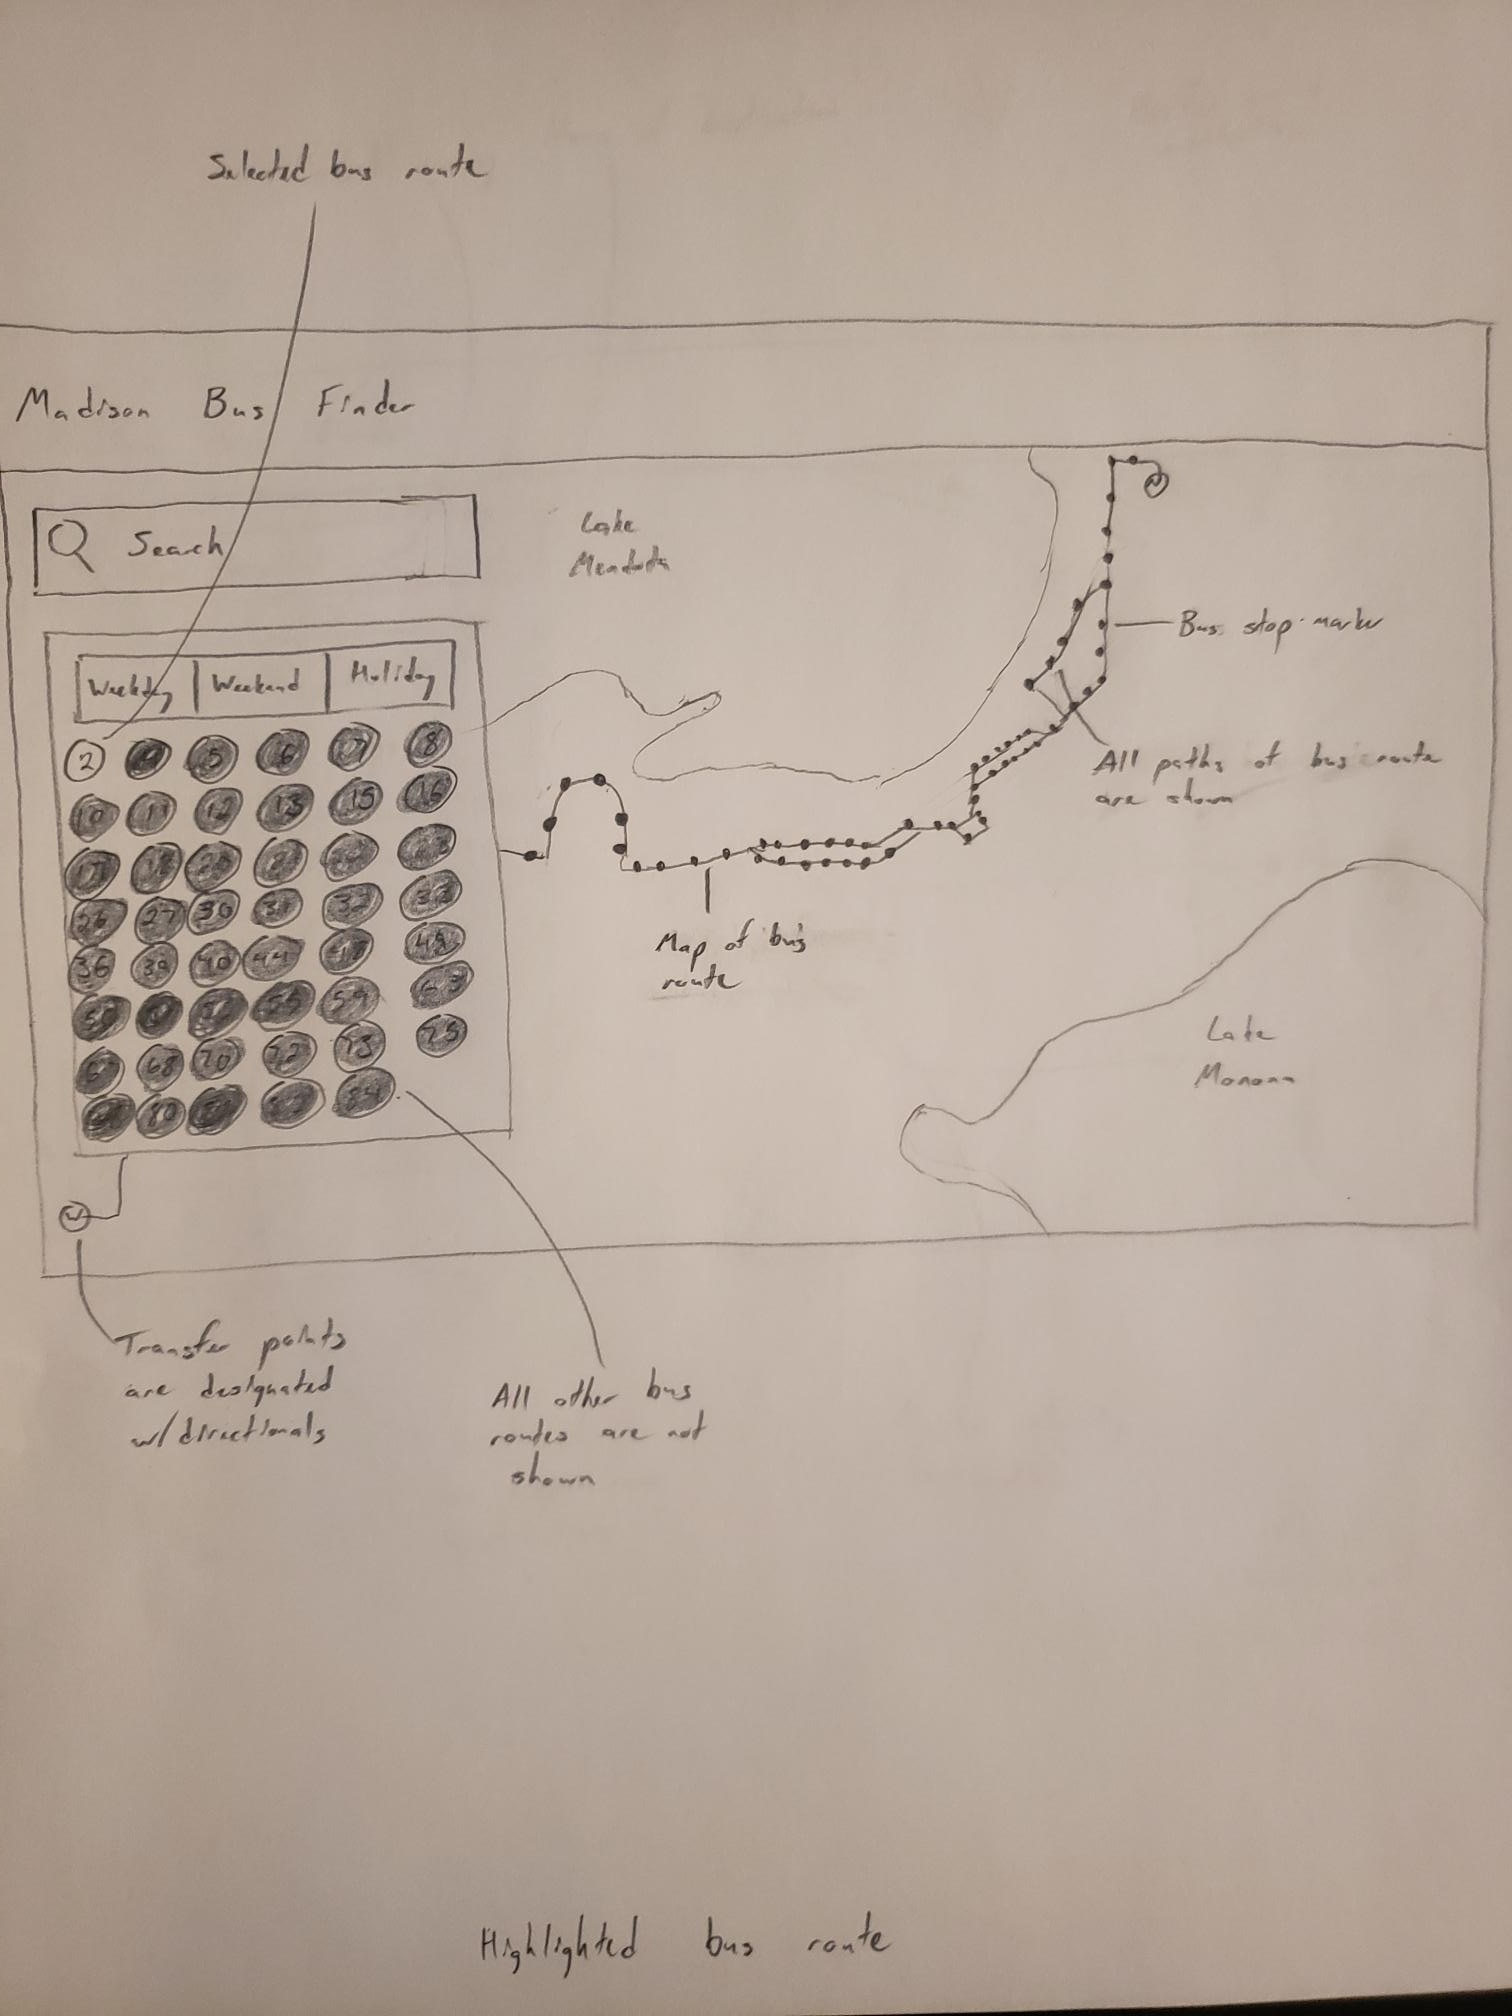 Selected bus route
Madison Bus Finder
Search
Lake
Mendota
Bus stop marker
Weekday Weekend Holiday
2 5 6 7 8
10 11 12 13 15 16
17 18 20
26 27 30 31 32 33
36 39 40 44 48
55 59 63
67 68 70 72 73 75
80 84
All paths of bus route
are shown
Map of bus
route
Lake
Monona
W
Transfer points
are designated
w/directionals
All other bus
routes are not
shown
Highlighted bus route